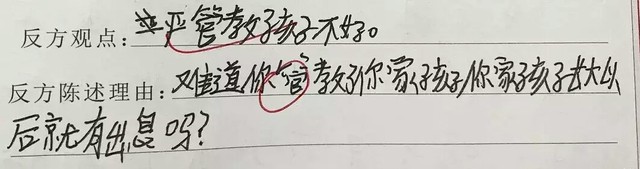 反方观点:严管教好孩子不好。
反方陈述理由:难道你管教好你家孩子,你家孩子长大以
后就有出息吗?